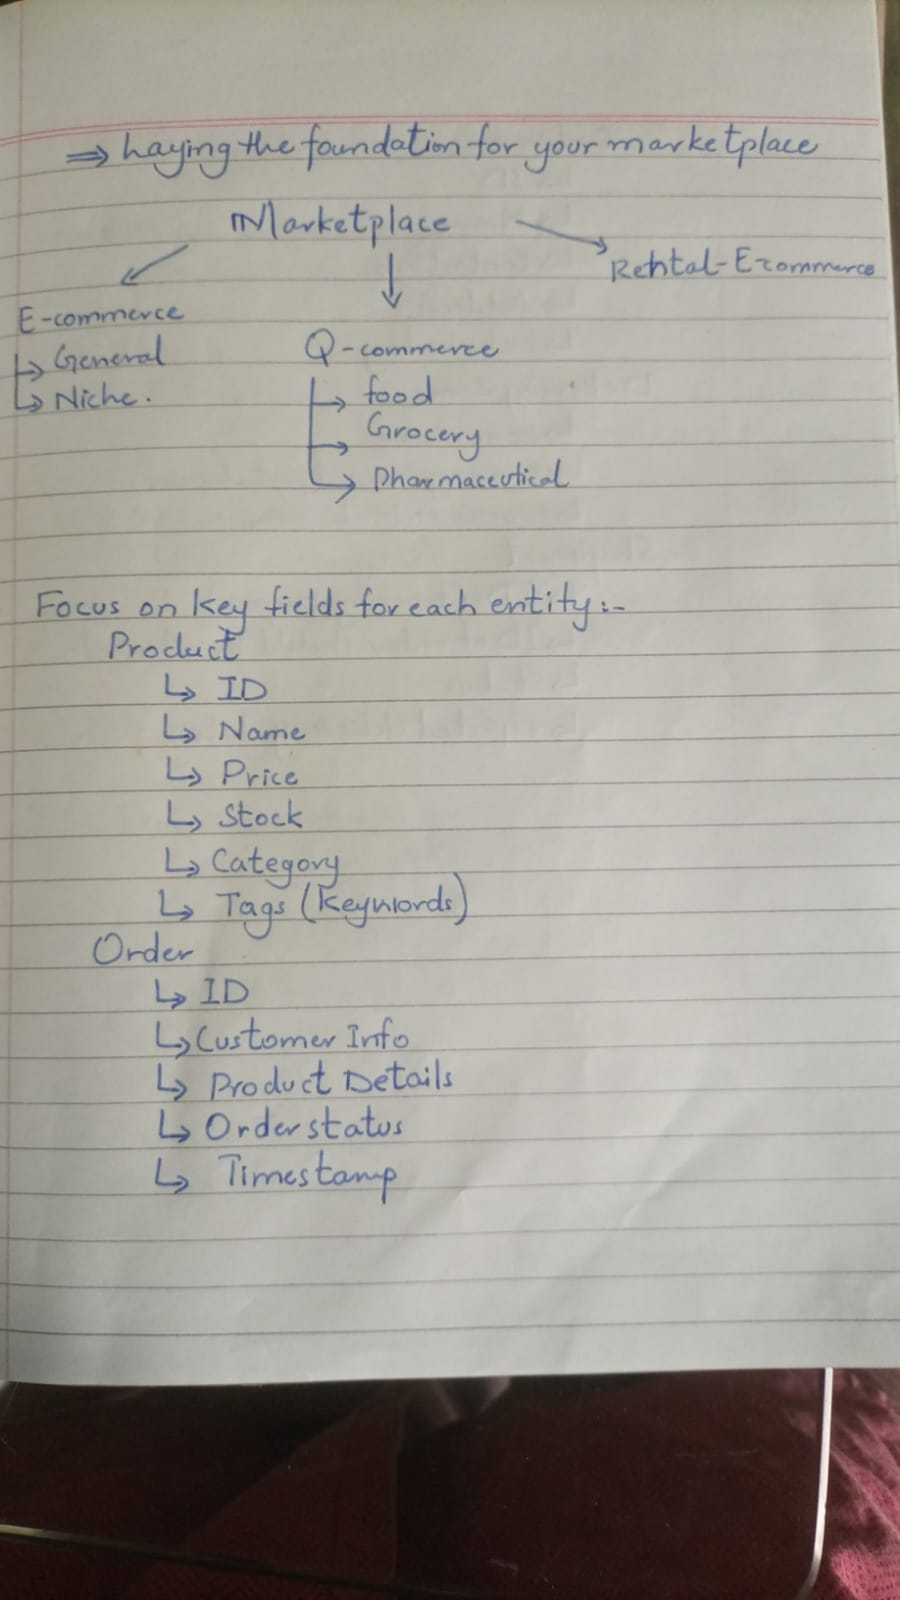 ⇒ Laying the foundation for your marketplace
Marketplace
Rental-Ecommerce
E-commerce
↳ General
↳ Niche.
Q-commerce
↳ food
↳ Grocery
↳ Pharmaceutical
Focus on key fields for each entity:-
Product
↳ ID
↳ Name
↳ Price
↳ Stock
↳ Category
↳ Tags (Keywords)
Order
↳ ID
↳ Customer Info
↳ Product Details
↳ Order status
↳ Timestamp